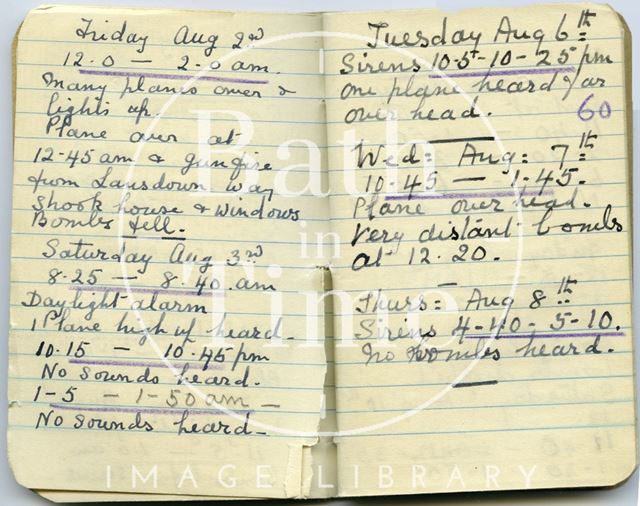 Friday Aug 2nd
12.0 — 2.0 am.
Many planes over &
lights up.
Plane over at
12-45 am & gunfire
from Lansdown way
shook house & windows
Bombs fell.
Saturday Aug 3rd
8.25 — 8.40. am
Daylight alarm
1 Plane high up heard.
10.15 — 10.45 pm
No sounds heard.
1-5 — 1-50 am —
No sounds heard —
Tuesday Aug 6th
Sirens 10-5-10-25 pm
One plane heard far
over head. 60
Wed: Aug: 7th
10-45 — 1-45.
Plane over head.
Very distant bombs
at 12.20.
Thurs: Aug 8th
Sirens 4-40-5-10.
No bombs heard.
Bath
in
Time
IMAGE LIBRARY